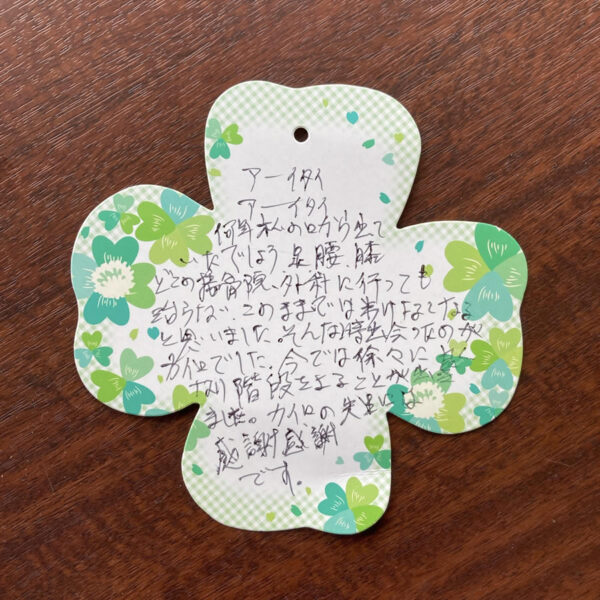 アーイタイ
アーイタイ
何年私の口から出て
いたでしょう 足 腰 膝
どこの接骨院、外科に行っても
治らない、このままでは歩けなくなる
と思いました。そんな時出会ったのが
カイロでした、今では徐々に
なり階段を上ることが
ました。カイロの先生には
感謝感謝
です。